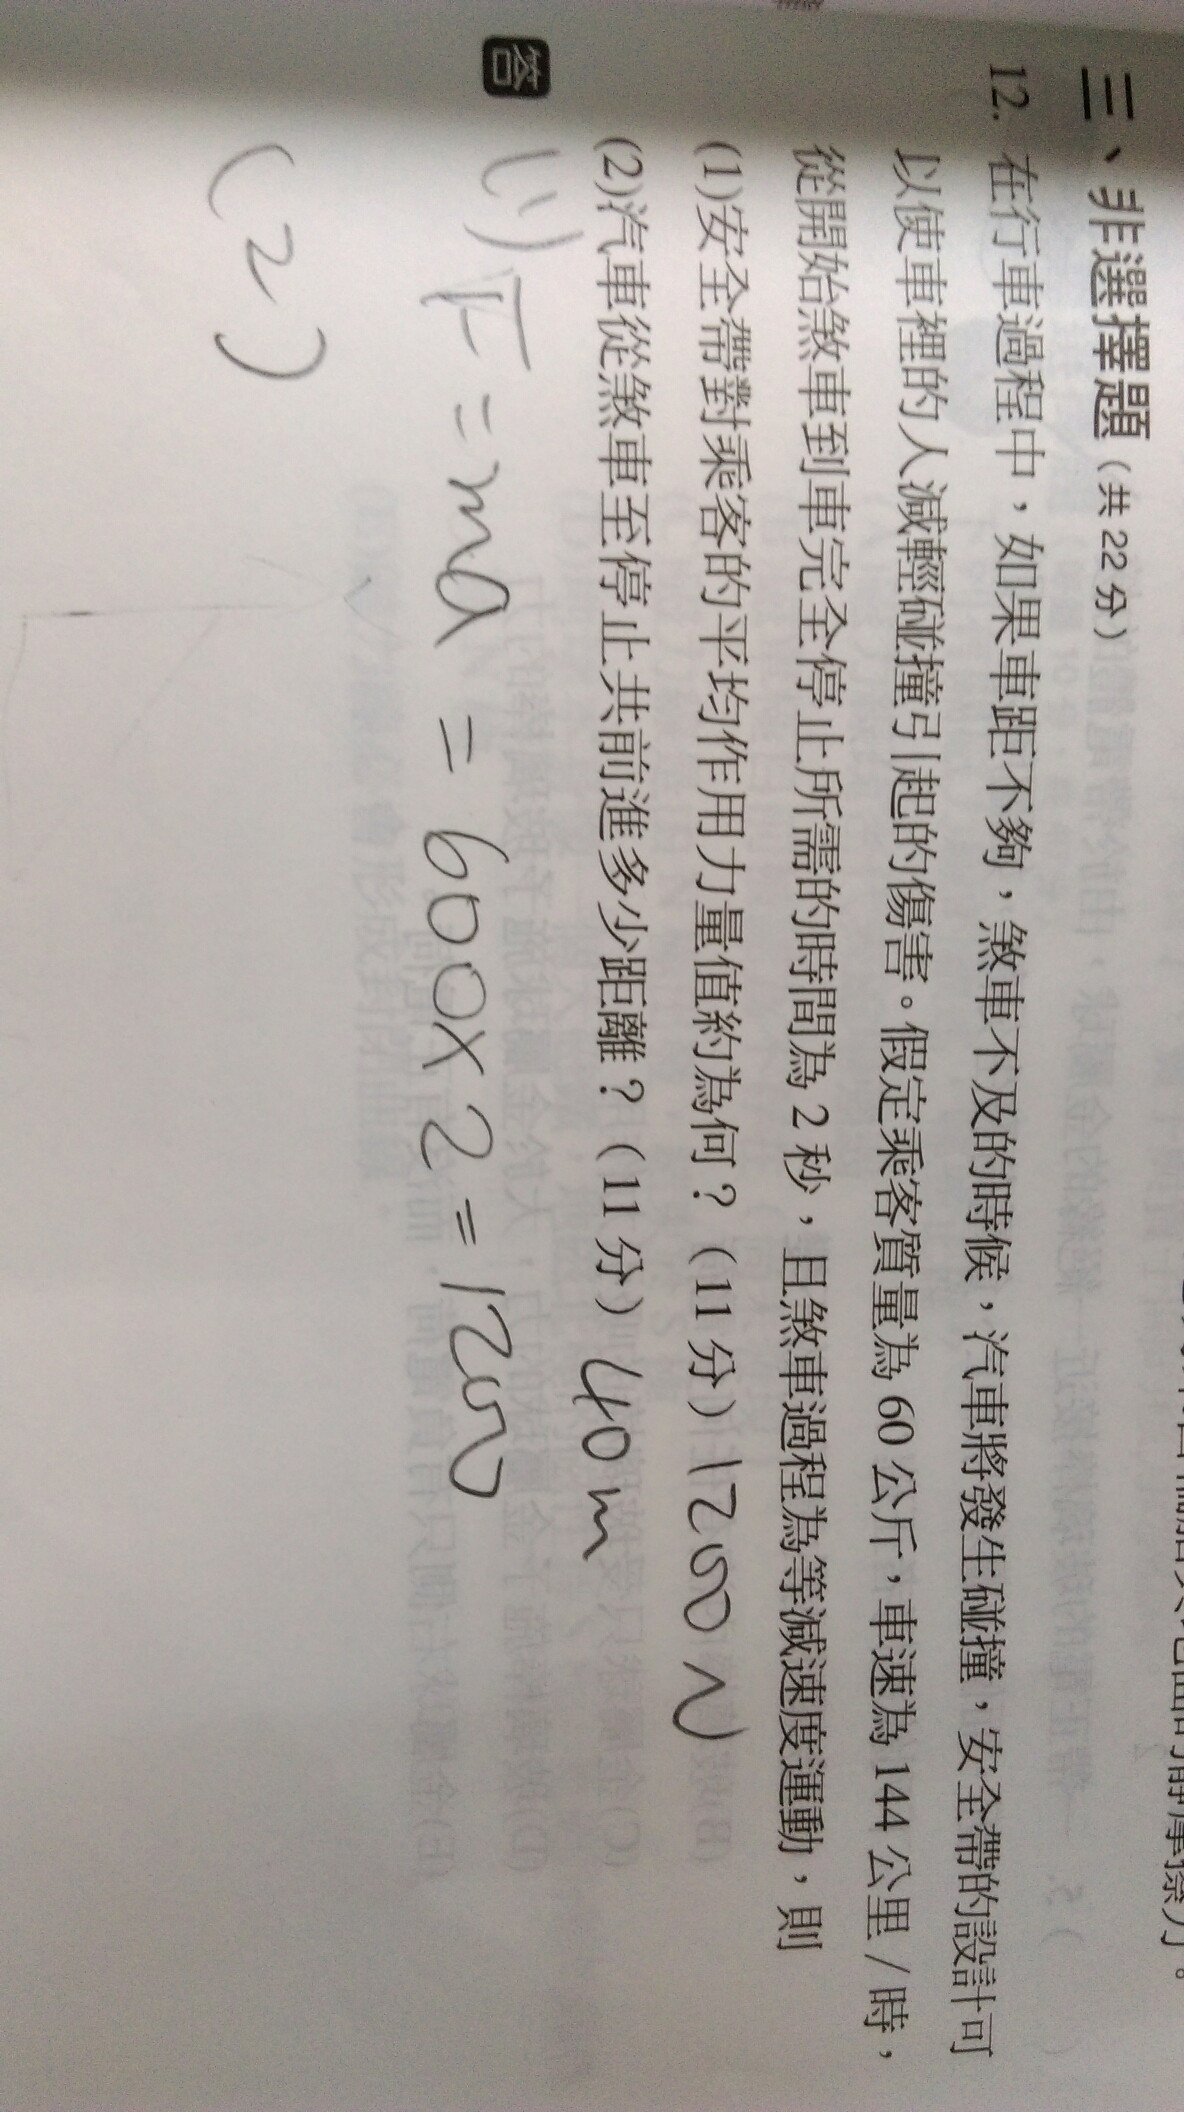 三、非選擇題（共 22 分）
12. 在行車過程中，如果車距不夠，煞車不及的時候，汽車將發生碰撞，安全帶的設計可
以使車裡的人減輕碰撞引起的傷害。假定乘客質量為 60 公斤，車速為 144 公里/時，
從開始煞車到車完全停止所需的時間為 2 秒，且煞車過程為等減速度運動，則
(1)安全帶對乘客的平均作用力量值約為何？（11 分）1200 N
(2)汽車從煞車至停止共前進多少距離？（11 分）40m
答 (1) F = ma = 600×2 = 1200
(2)